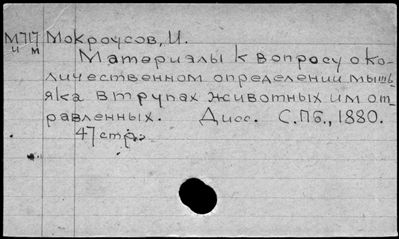 М717 Мокроусов, И.
и м Материалы к вопросу о ко-
личественном определении мышь-
яка в трупах животных им от-
равленных. Дисс. С.Пб., 1880.
47 стр.